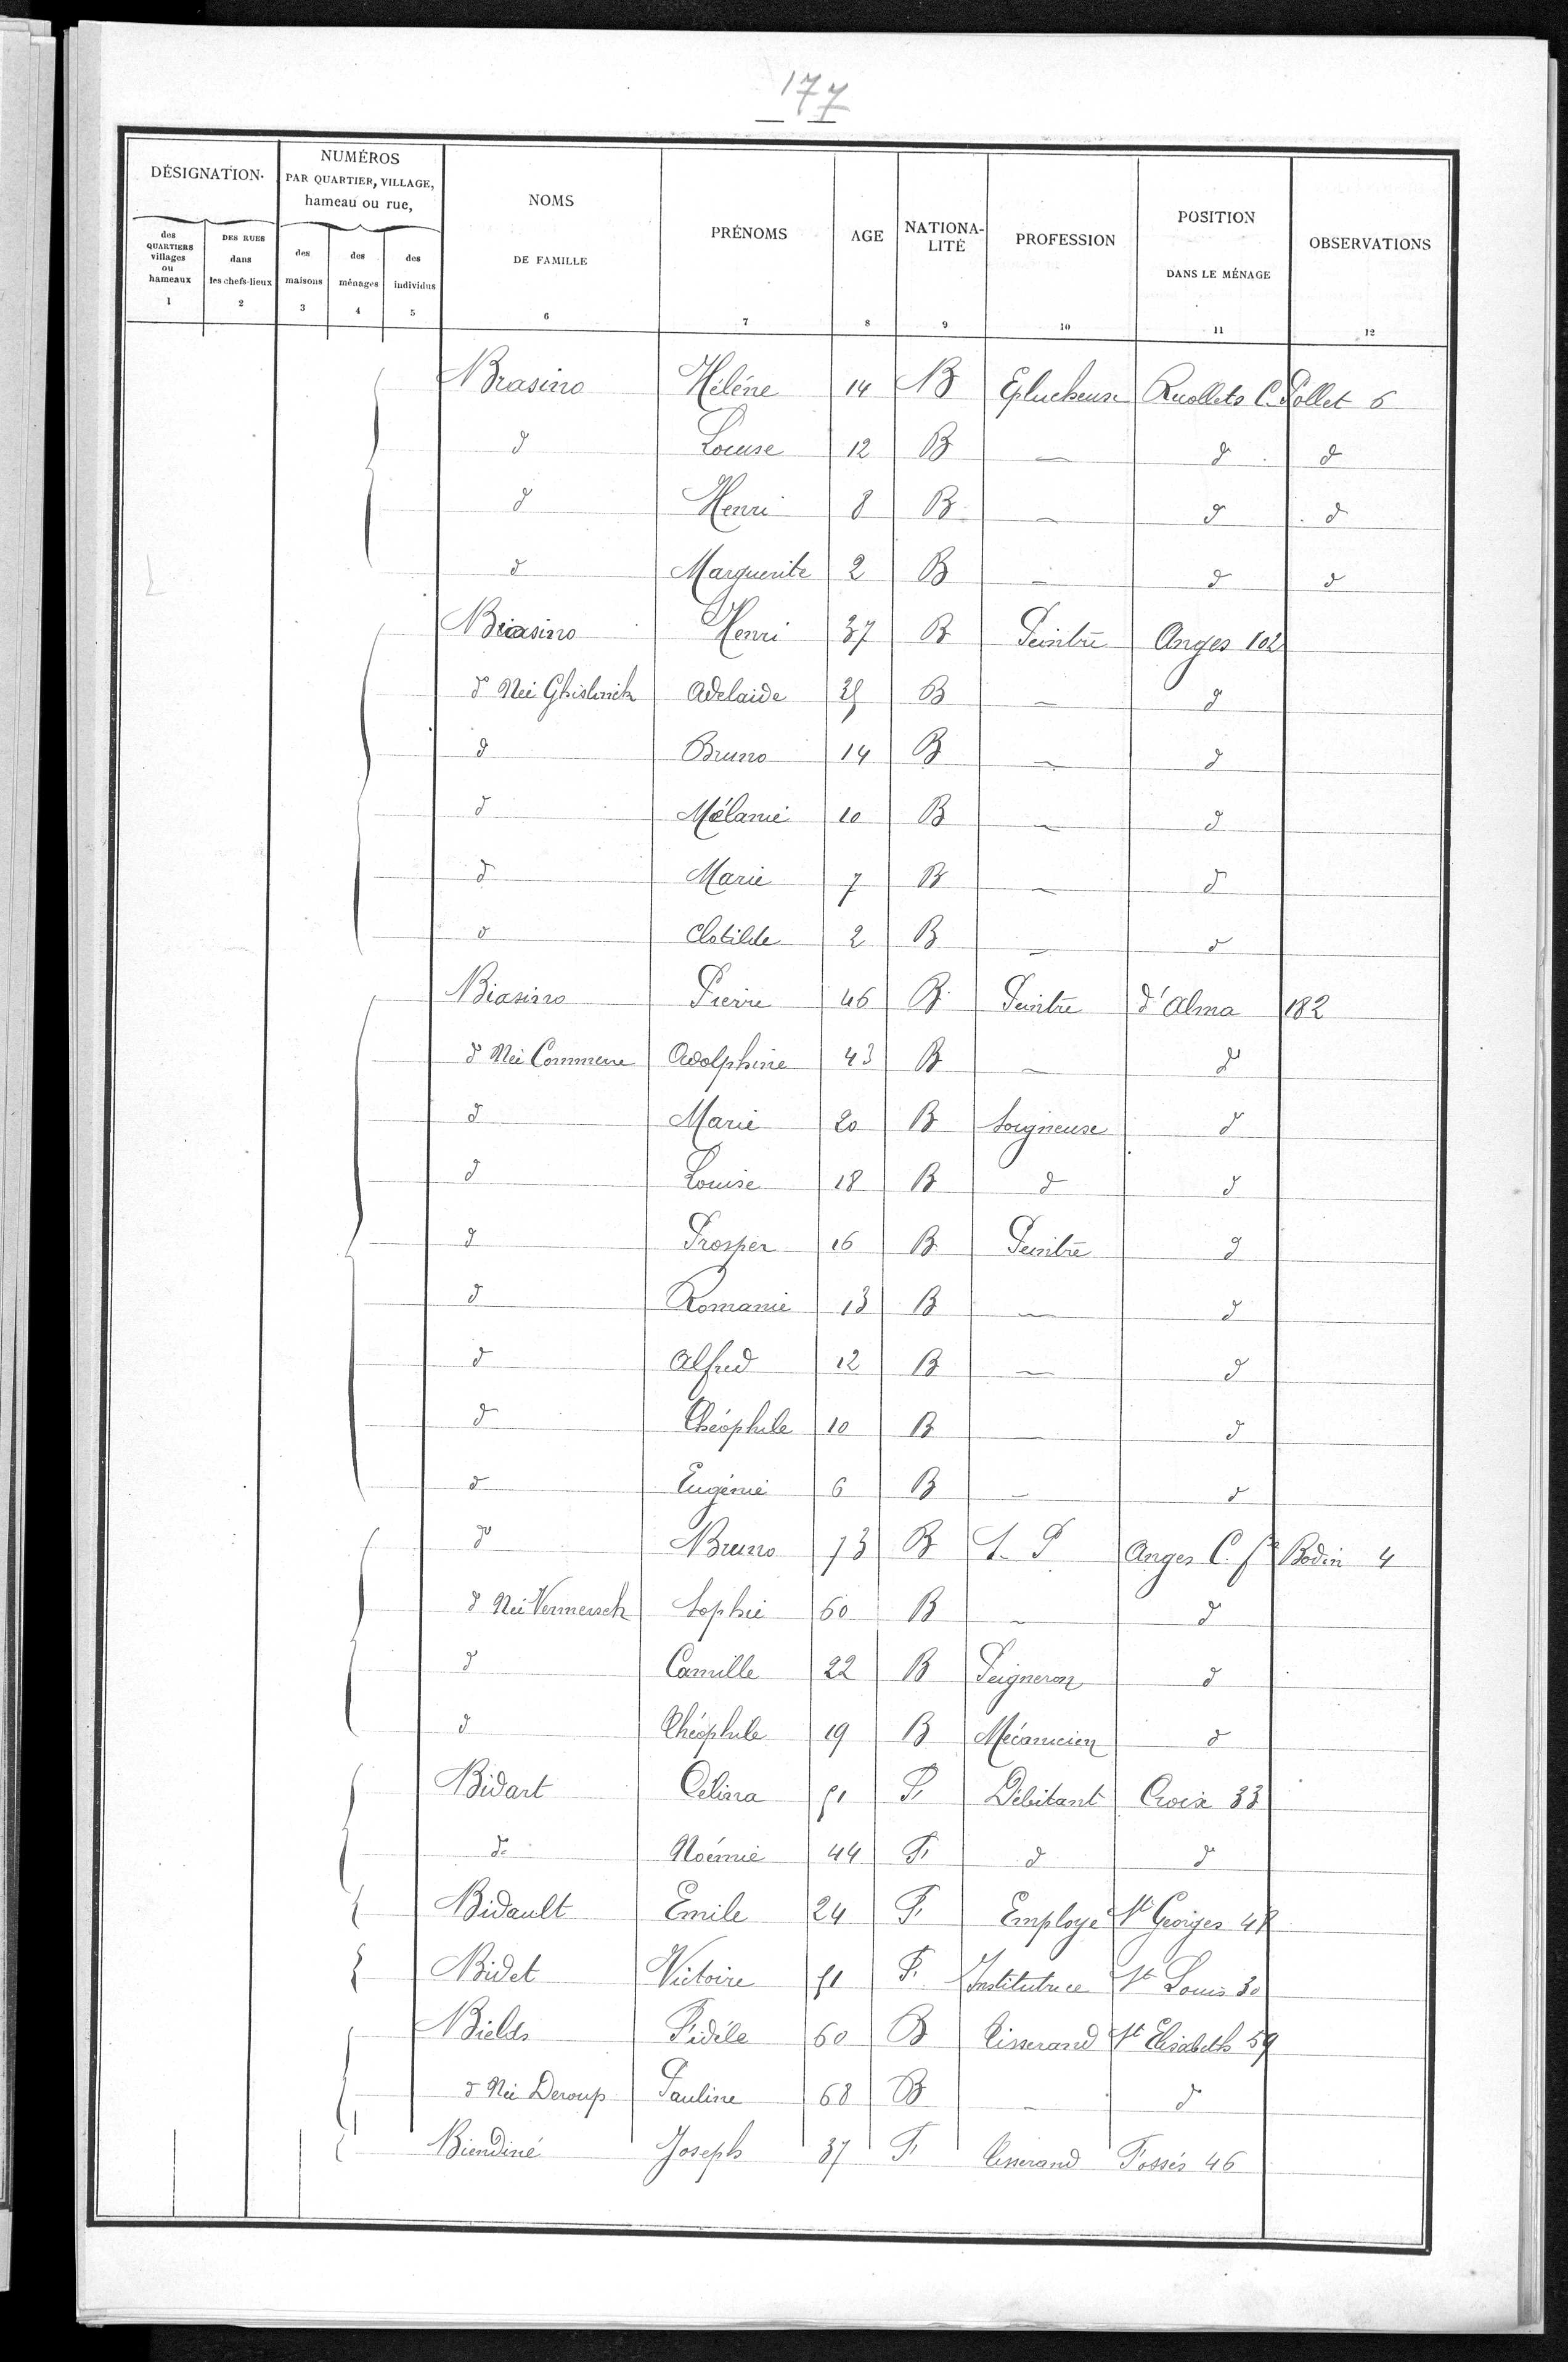 177
DÉSIGNATION. NUMÉROS PAR QUARTIER, VILLAGE, hameau ou rue, NOMS DE FAMILLE PRÉNOMS AGE NATIONALITÉ PROFESSION POSITION DANS LE MÉNAGE OBSERVATIONS
des QUARTIERS villages ou hameaux DES RUES dans les chefs-lieux des maisons des ménages des individus
1 2 3 4 5 6 7 8 9 10 11 12
Brasino Hélène 14 B Eplucheuse Ruollets C. Pollet 6
d Louise 12 B — d d
d Henri 8 B — d d
d Marguerite 2 B — d d
Biasino Henri 37 B Peintre Anges 102
d Née Ghislinick Adelaide 35 B — d
d Bruno 14 B — d
d Mélanie 10 B — d
d Marie 7 B — d
d Clotilde 2 B — d
Biasino Pierre 46 B Peintre d'Alma 182
d Née Commere Adolphine 43 B — d
d Marie 20 B Soigneuse d
d Louise 18 B d d
d Prosper 16 B Peintre d
d Romanie 13 B — d
d Alfred 12 B — d
d Théophile 10 B — d
d Eugénie 6 B — d
d Bruno 73 B S. P Anges C. fe Bodin 4
d Née Vermersch Sophie 60 B — d
d Camille 22 B Peigneron d
d Théophile 19 B Mécanicien d
Bidart Célina 51 F Débitant Croix 33
d Noémie 44 F d d
Bidault Emile 24 F Employé St Georges 48
Bidet Victoire 51 F Institutrice St Louis 30
Bields Fidèle 60 B Tisserand St Elisabeth 59
d Née Deroup Pauline 68 B — d
Biendiné Joseph 37 F Tisserand Fossés 46